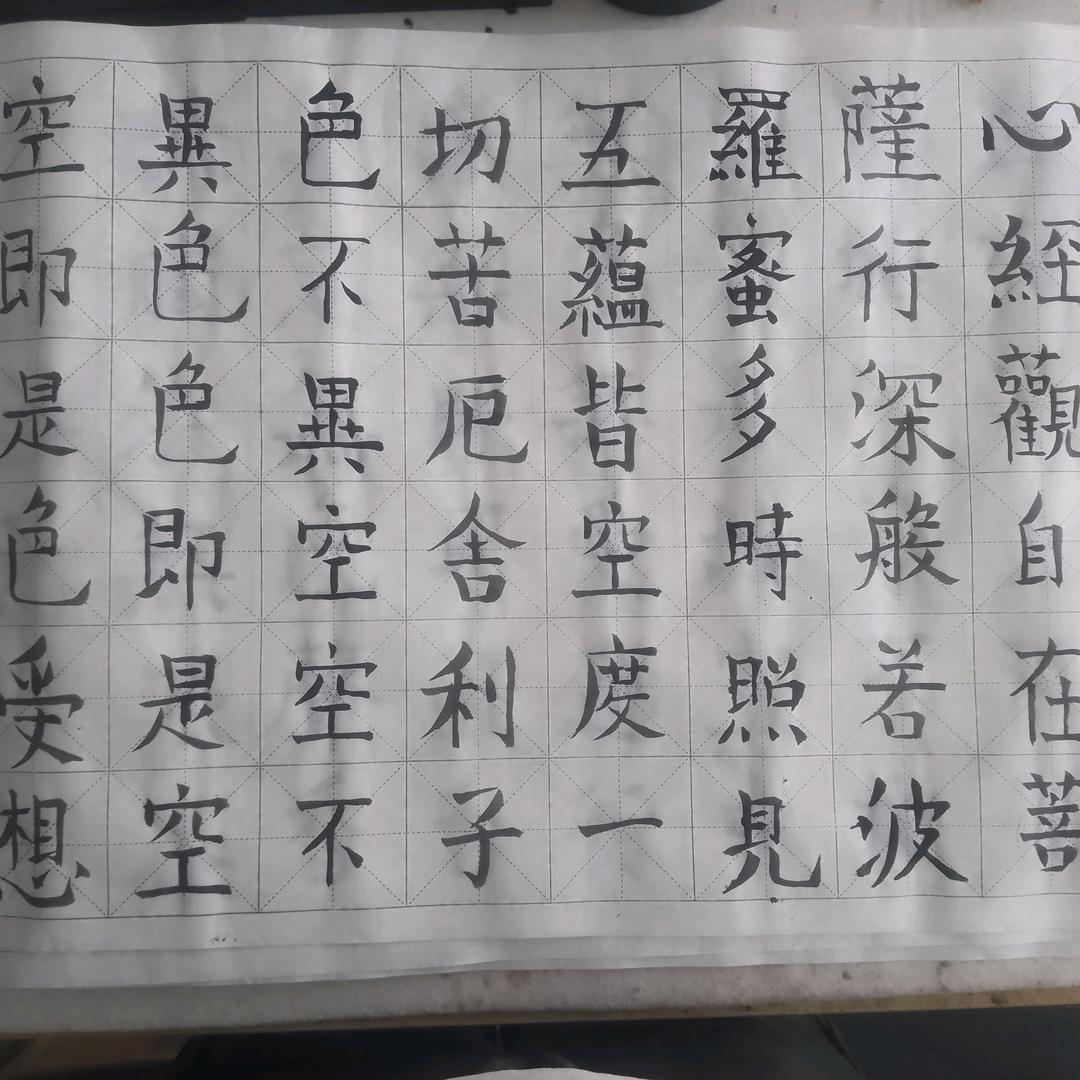 心經觀自在菩
薩行深般若波
羅蜜多時照見
五蘊皆空度一
切苦厄舍利子
色不異空空不
異色色即是空
空即是色受想